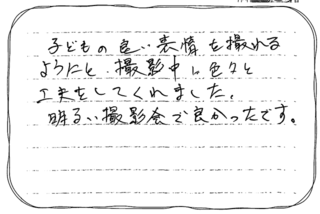 子どもの良い表情を撮れる
ようにと、撮影中も色々と
工夫をしてくれました。
明るい撮影会で良かったです。